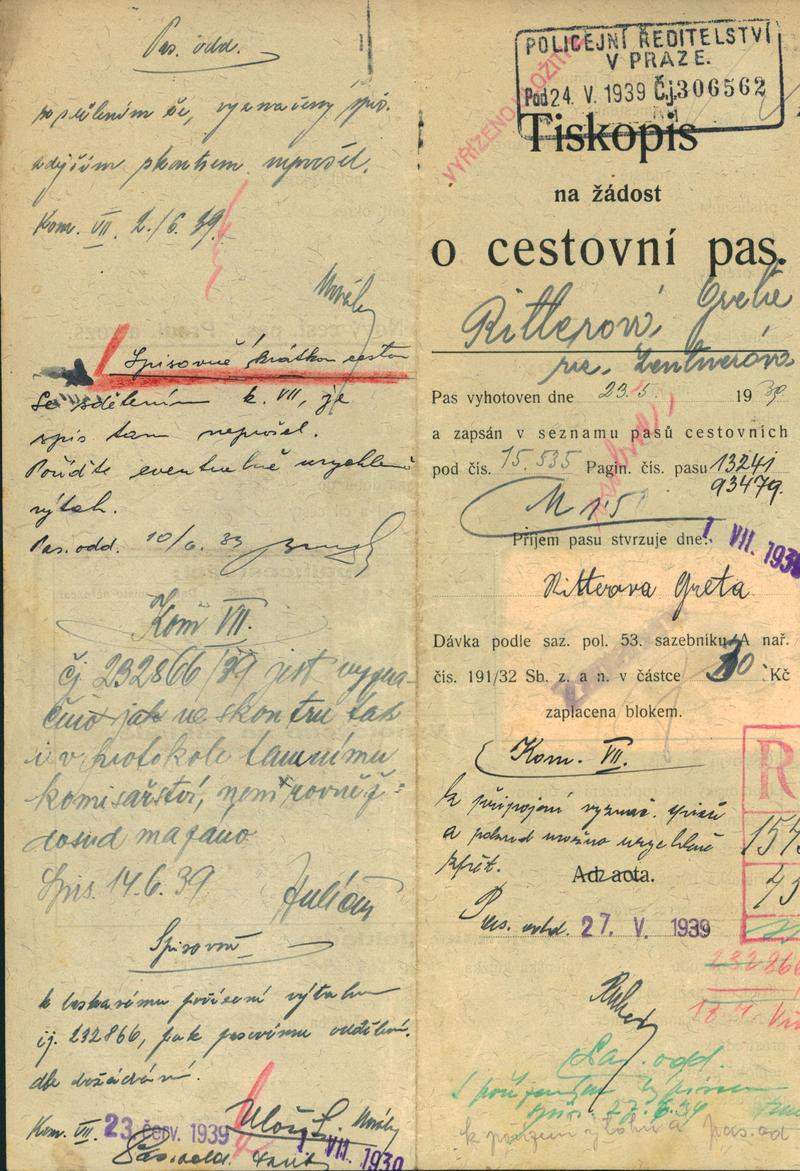 Pas. odd.
se sdělením že, vyznačený spis
zdejším skontrem neprošel.
Kom. VII. 2./6. 39
Spisovně krátkou cestou
Se sdělením k. VII, že
spis tam neprošel.
Pořiďte eventuelně urychleně
výtah.
Pas. odd. 10/6. 39
Kom VII.
čj 232866/39 jest vyzna-
čeno jak ve skontru tak
i v protokole tamnímu
komisařství, není rovněž
dosud majáno
Spis. 14.6.39
Julián
Spisovně
k laskavému pořízení výtahu
čj. 232866, pak pasovému oddělení.
dle dožádání.
Kom. VII. 23. ČERV. 1939
Pas. odd.
1. VII. 1939
POLICEJNÍ ŘEDITELSTVÍ
V PRAZE.
Pod 24. V. 1939 Čj. 306562
VYŘÍZENO ULOŽITI
Tiskopis
na žádost
o cestovní pas.
Ritterová Grete
roz. Zentnerová
Pas vyhotoven dne 23.5. 1939
a zapsán v seznamu pasů cestovních
pod čís. 15.535 Pagin. čís. pasu 13241
93479.
M 15
Příjem pasu stvrzuje dne: 1. VII. 1939
Ritterova Greta
Dávka podle saz. pol. 53. sazebníku A nař.
čís. 191/32 Sb. z. a n. v částce 30 Kč
zaplacena blokem.
Kom. VII.
R
k připojení vyznač. spisů
a pokud možno urychleně
zpět.
Ad acta.
Pas. odd. 27. V. 1939
232866
Pas. odd.
27.6.39